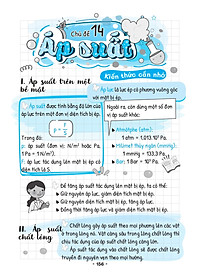 Chủ đề 14
Áp suất
Kiến thức cần nhớ
I. Áp suất trên một
bề mặt
Áp lực là lực ép có phương vuông góc
với mặt bị ép.
Áp suất được tính bằng độ lớn của
áp lực trên một đơn vị diện tích bị ép.
p = F/S
Trong đó:
p: áp suất (đơn vị: N/m² hoặc Pa,
1 Pa = 1 N/m²).
F: áp lực tác dụng lên mặt bị ép có
diện tích là S.
Ngoài ra, còn dùng một số đơn
vị áp suất khác:
Atmôtphe (atm):
1 atm = 1,013.10⁵ Pa.
Milimet thủy ngân (mmHg):
1 mmHg = 133,3 Pa.
Bar: 1 Bar = 10⁵ Pa.
Để tăng áp suất tác dụng lên mặt bị ép, ta có thể:
Giữ nguyên áp lực, giảm diện tích mặt bị ép.
Giữ nguyên diện tích mặt bị ép, tăng áp lực.
Đồng thời tăng áp lực và giảm diện tích mặt bị ép.
II. Áp suất
chất lỏng
Chất lỏng gây áp suất theo mọi phương lên các vật
ở trong lòng nó. Vật càng sâu trong lòng chất lỏng thì
chịu tác dụng của áp suất chất lỏng càng lớn.
Áp suất tác dụng vào chất lỏng sẽ được chất lỏng
truyền đi nguyên vẹn theo mọi hướng.
156